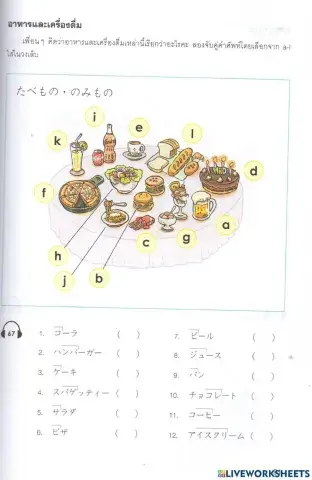 อาหารและเครื่องดื่ม
เพื่อน ๆ คิดว่าอาหารและเครื่องดื่มเหล่านี้เรียกว่าอะไรคะ ลองจับคู่คำศัพท์โดยเลือกจาก a-l
ใส่ในวงเล็บ
たべもの・のみもの
i
k
e
l
f
d
h
a
j
b
c
g
67
1. コーラ ( )
2. ハンバーガー ( )
3. ケーキ ( )
4. スパゲッティー ( )
5. サラダ ( )
6. ピザ ( )
7. ビール ( )
8. ジュース ( )
9. パン ( )
10. チョコレート ( )
11. コーヒー ( )
12. アイスクリーム ( )
LIVEWORKSHEETS